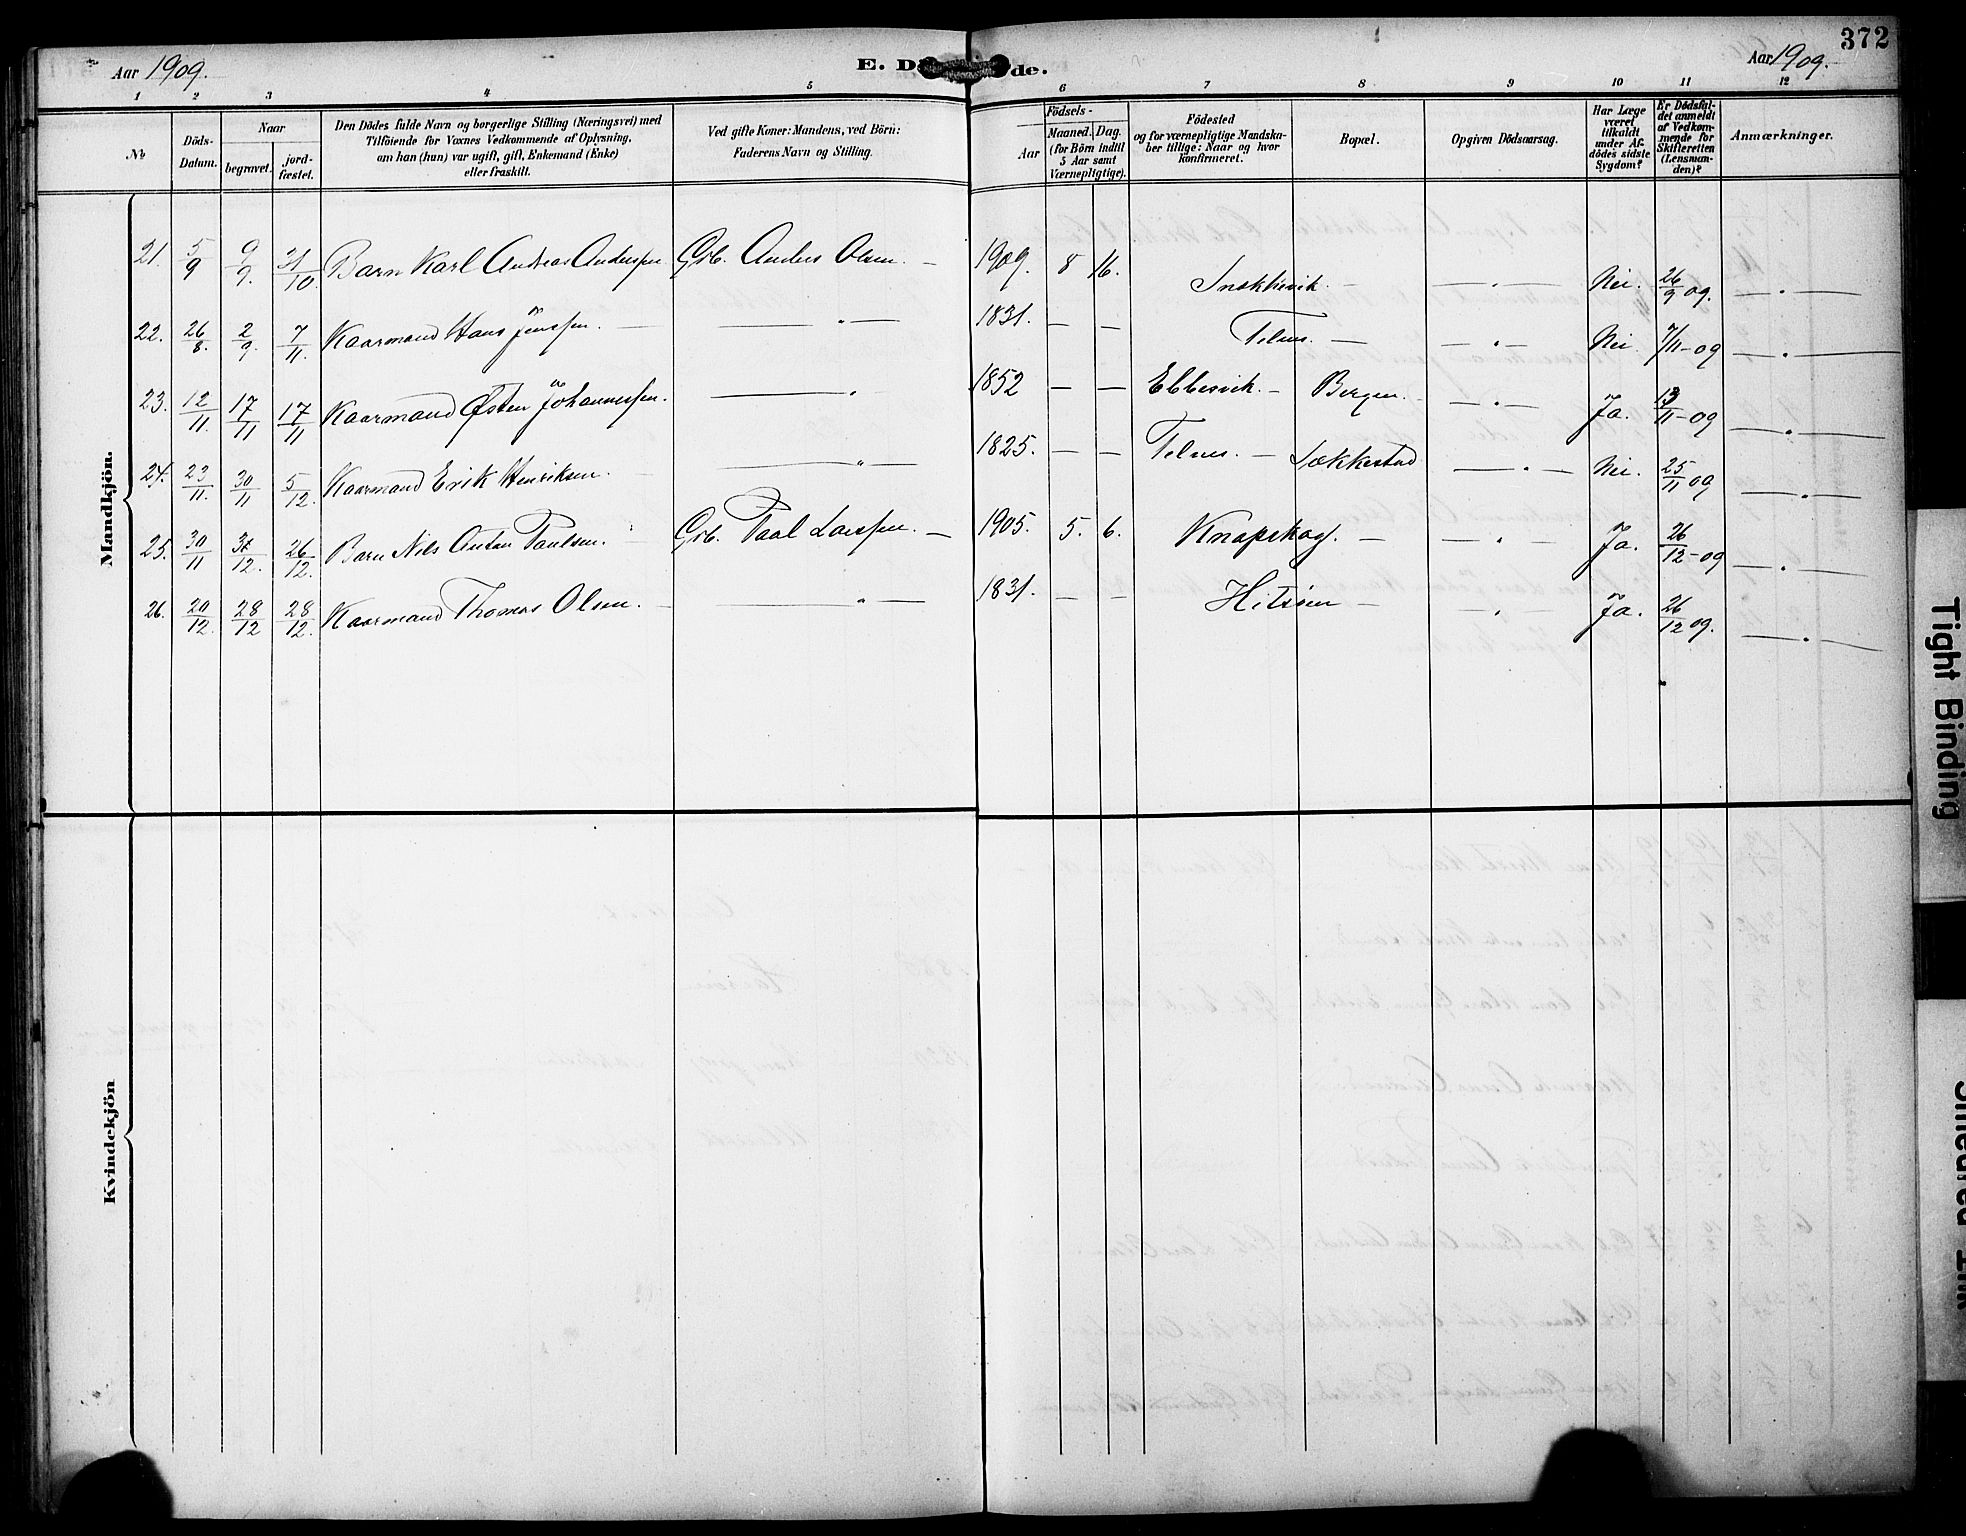 372
Aar 1909. E. D de. Aar 1909.
1 2 3 4 5 6 7 8 9 10 11 12
No
Döds-Datum.
Naar
begravet.
jord-fæstet.
Den Dödes fulde Navn og borgerlige Stilling (Næringsvei) med
Tilföiende for Voxnes Vedkommende af Oplysning,
om han (hun) var ugift, gift, Enkemand (Enke)
eller fraskilt.
Ved gifte Koner: Mandens, ved Börn:
Faderens Navn og Stilling.
Födsels-
Aar
Maaned. Dag.
(for Börn indtil
5 Aar samt
Værnepligtige).
Födested
og for værnepligtige Mandska-
ber tillige: Naar og hvor
konfirmeret.
Bopæl.
Opgiven Dödsaarsag.
Har Læge
været
tilkaldt
under Af-
dödes sidste
Sygdom?
Er Dödsfal-
det anmeldt
af Vedkom-
mende for
Skifteretten
(Lensman-
den)?
Anmærkninger.
Mandkjön.
21. 5/9 9/9. 31/10. Barn Karl Andreas Anderssen Grb. Anders Olsen. — 1909. 8 16. Snekkevik. — — " — Nei. 26/9 09. — " —
22. 26/8. 2/9. 7/11. Kaarmand Hans Jenssen. — — " — 1831. — — Telnes. — — " — Nei. 7/11-09 — " —
23. 12/11. 17/11 17/11 Kaarmand Østen Johannessen. — " 1852 — — Ebbesvik. — Bergen. — " — Ja. 13/11-09 — " —
24. 23/11. 30/11 5/12. Kaarmand Erik Henriksen. — " — 1825. — — Telnes. — Lækkestad — " — Nei. 25/11 09 — " —
25. 30/11 /12. 26/12. Barn Nils Anton Paulsen. Grb. Paal Larssen. — 1905. 5. 6. Knapskog. — — " — Ja. 26/12-09 — " —
26. 20/12. 28/12 28/12. Kaarmand Thomas Olsen. — — " — 1831. — — Hitsöen — — " — Ja. 26/12 09. — " —
Kvindekjön
Tight Binding
Smeared Ink